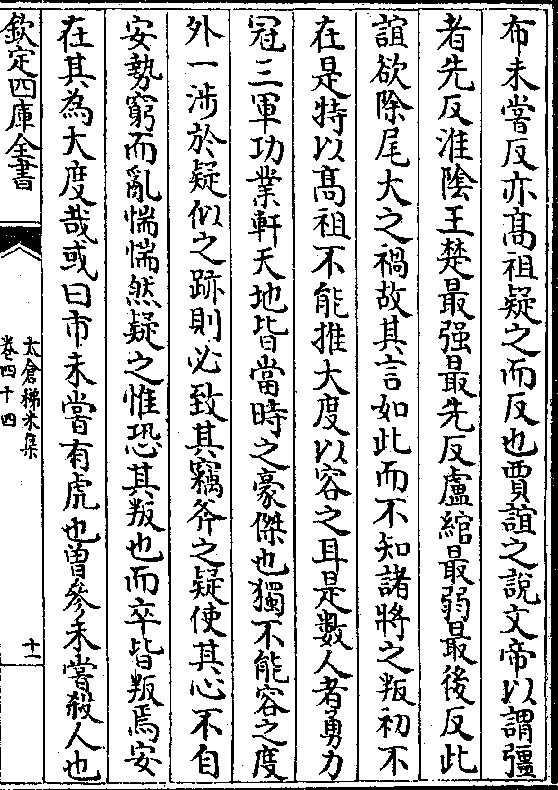 布未嘗反亦髙祖疑之而反也賈誼之說文帝以謂彊
者先反淮隂王楚最强最先反盧綰最弱最後反此
誼欲除尾大之禍故其言如此而不知諸將之叛初不
在是特以髙祖不能推大度以容之耳是數人者勇力
冠三軍功業軒天地皆當時之豪傑也獨不能容之度
外一涉於疑似之跡則必致其竊斧之疑使其心不自
安勢窮而亂惴惴然疑之惟恐其叛也而卒皆叛焉安
在其為大度哉或曰市未嘗有虎也曽參未嘗殺人也
欽定四庫全書
太倉稊米集
卷四十四
十一